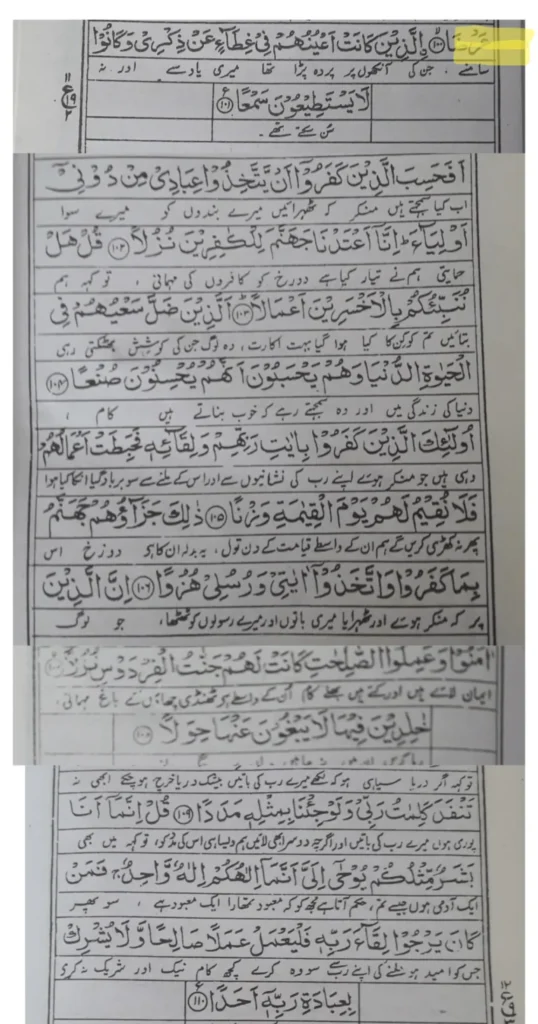 عَرْضًا ۝١٠٠ الَّذِيْنَ كَانَتْ اَعْيُنُهُمْ فِيْ غِطَآءٍ عَنْ ذِكْرِيْ وَكَانُوْا
سامنے ، جن کی آنکھوں پر پردہ پڑا تھا میری یاد سے اور نہ
لَا يَسْتَطِيْعُوْنَ سَمْعًا ۝١٠١
سن سکتے تھے ۔
اَفَحَسِبَ الَّذِيْنَ كَفَرُوْٓا اَنْ يَّتَّخِذُوْا عِبَادِيْ مِنْ دُوْنِيْٓ
اب کیا سمجھتے ہیں منکر کہ ٹھہرائیں میرے بندوں کو میرے سوا
اَوْلِيَآءَ ؕ اِنَّآ اَعْتَدْنَا جَهَنَّمَ لِلْكٰفِرِيْنَ نُزُلًا ۝١٠٢ قُلْ هَلْ
حمایتی ہم نے تیار کیا ہے دوزخ کو کافروں کی مہمانی ، تو کہہ ہم
نُنَبِّئُكُمْ بِالْاَخْسَرِيْنَ اَعْمَالًا ۝١٠٣ اَلَّذِيْنَ ضَلَّ سَعْيُهُمْ فِي
بتائیں تم کو کن کا کیا ہوا گیا بہت اکارت ، وہ لوگ جن کی کوشش بھٹکتی رہی
الْحَيٰوةِ الدُّنْيَا وَهُمْ يَحْسَبُوْنَ اَنَّهُمْ يُحْسِنُوْنَ صُنْعًا ۝١٠٤
دنیا کی زندگی میں اور وہ سمجھتے رہے کہ خوب بناتے ہیں کام ،
اُولٰٓئِكَ الَّذِيْنَ كَفَرُوْا بِاٰيٰتِ رَبِّهِمْ وَلِقَآئِهٖ فَحَبِطَتْ اَعْمَالُهُمْ
وہی ہیں جو منکر ہوئے اپنے رب کی نشانیوں سے اور اس کے ملنے سے سو برباد گیا انکا کیا ہوا
فَلَا نُقِيْمُ لَهُمْ يَوْمَ الْقِيٰمَةِ وَزْنًا ۝١٠٥ ذٰلِكَ جَزَآؤُهُمْ جَهَنَّمُ
پھر نہ کھڑی کریں گے ہم ان کے واسطے قیامت کے دن تول ، یہ بدلہ ان کا ہے دوزخ اس
بِمَا كَفَرُوْا وَاتَّخَذُوْٓا اٰيٰتِيْ وَرُسُلِيْ هُزُوًا ۝١٠٦ اِنَّ الَّذِيْنَ
پر کہ منکر ہوئے اور ٹھہرایا میری باتوں اور میرے رسولوں کو ٹھٹھا ، جو لوگ
اٰمَنُوْا وَعَمِلُوا الصّٰلِحٰتِ كَانَتْ لَهُمْ جَنّٰتُ الْفِرْدَوْسِ نُزُلًا ۝١٠٧
ایمان لائے ہیں اور کئے ہیں بھلے کام ان کے واسطے ہے ٹھنڈی چھاؤں کے باغ مہمانی ،
خٰلِدِيْنَ فِيْهَا لَا يَبْغُوْنَ عَنْهَا حِوَلًا ۝١٠٨
تو کہہ اگر دریا سیاہی ہو کہ لکھے میرے رب کی باتیں بیشک دریا خرچ ہو چکے ابھی نہ
تَنْفَدَ كَلِمٰتُ رَبِّيْ وَلَوْ جِئْنَا بِمِثْلِهٖ مَدَدًا ۝١٠٩ قُلْ اِنَّمَآ اَنَا
پوری ہوں میرے رب کی باتیں اور اگرچہ دوسرا بھی لائیں ہم ویسا ہی اس کی مدد کو ، تو کہہ میں بھی
بَشَرٌ مِّثْلُكُمْ يُوْحٰٓى اِلَيَّ اَنَّمَآ اِلٰهُكُمْ اِلٰهٌ وَّاحِدٌ ۚ فَمَنْ
ایک آدمی ہوں جیسے تم ، حکم آتا ہے مجھ کو کہ معبود تمھارا ایک معبود ہے ، سو پھر
كَانَ يَرْجُوْا لِقَآءَ رَبِّهٖ فَلْيَعْمَلْ عَمَلًا صَالِحًا وَّلَا يُشْرِكْ
جس کو امید ہو ملنے کی اپنے رب سے سو وہ کرے کچھ کام نیک اور شریک نہ کرے
بِعِبَادَةِ رَبِّهٖٓ اَحَدًا ۝١١٠